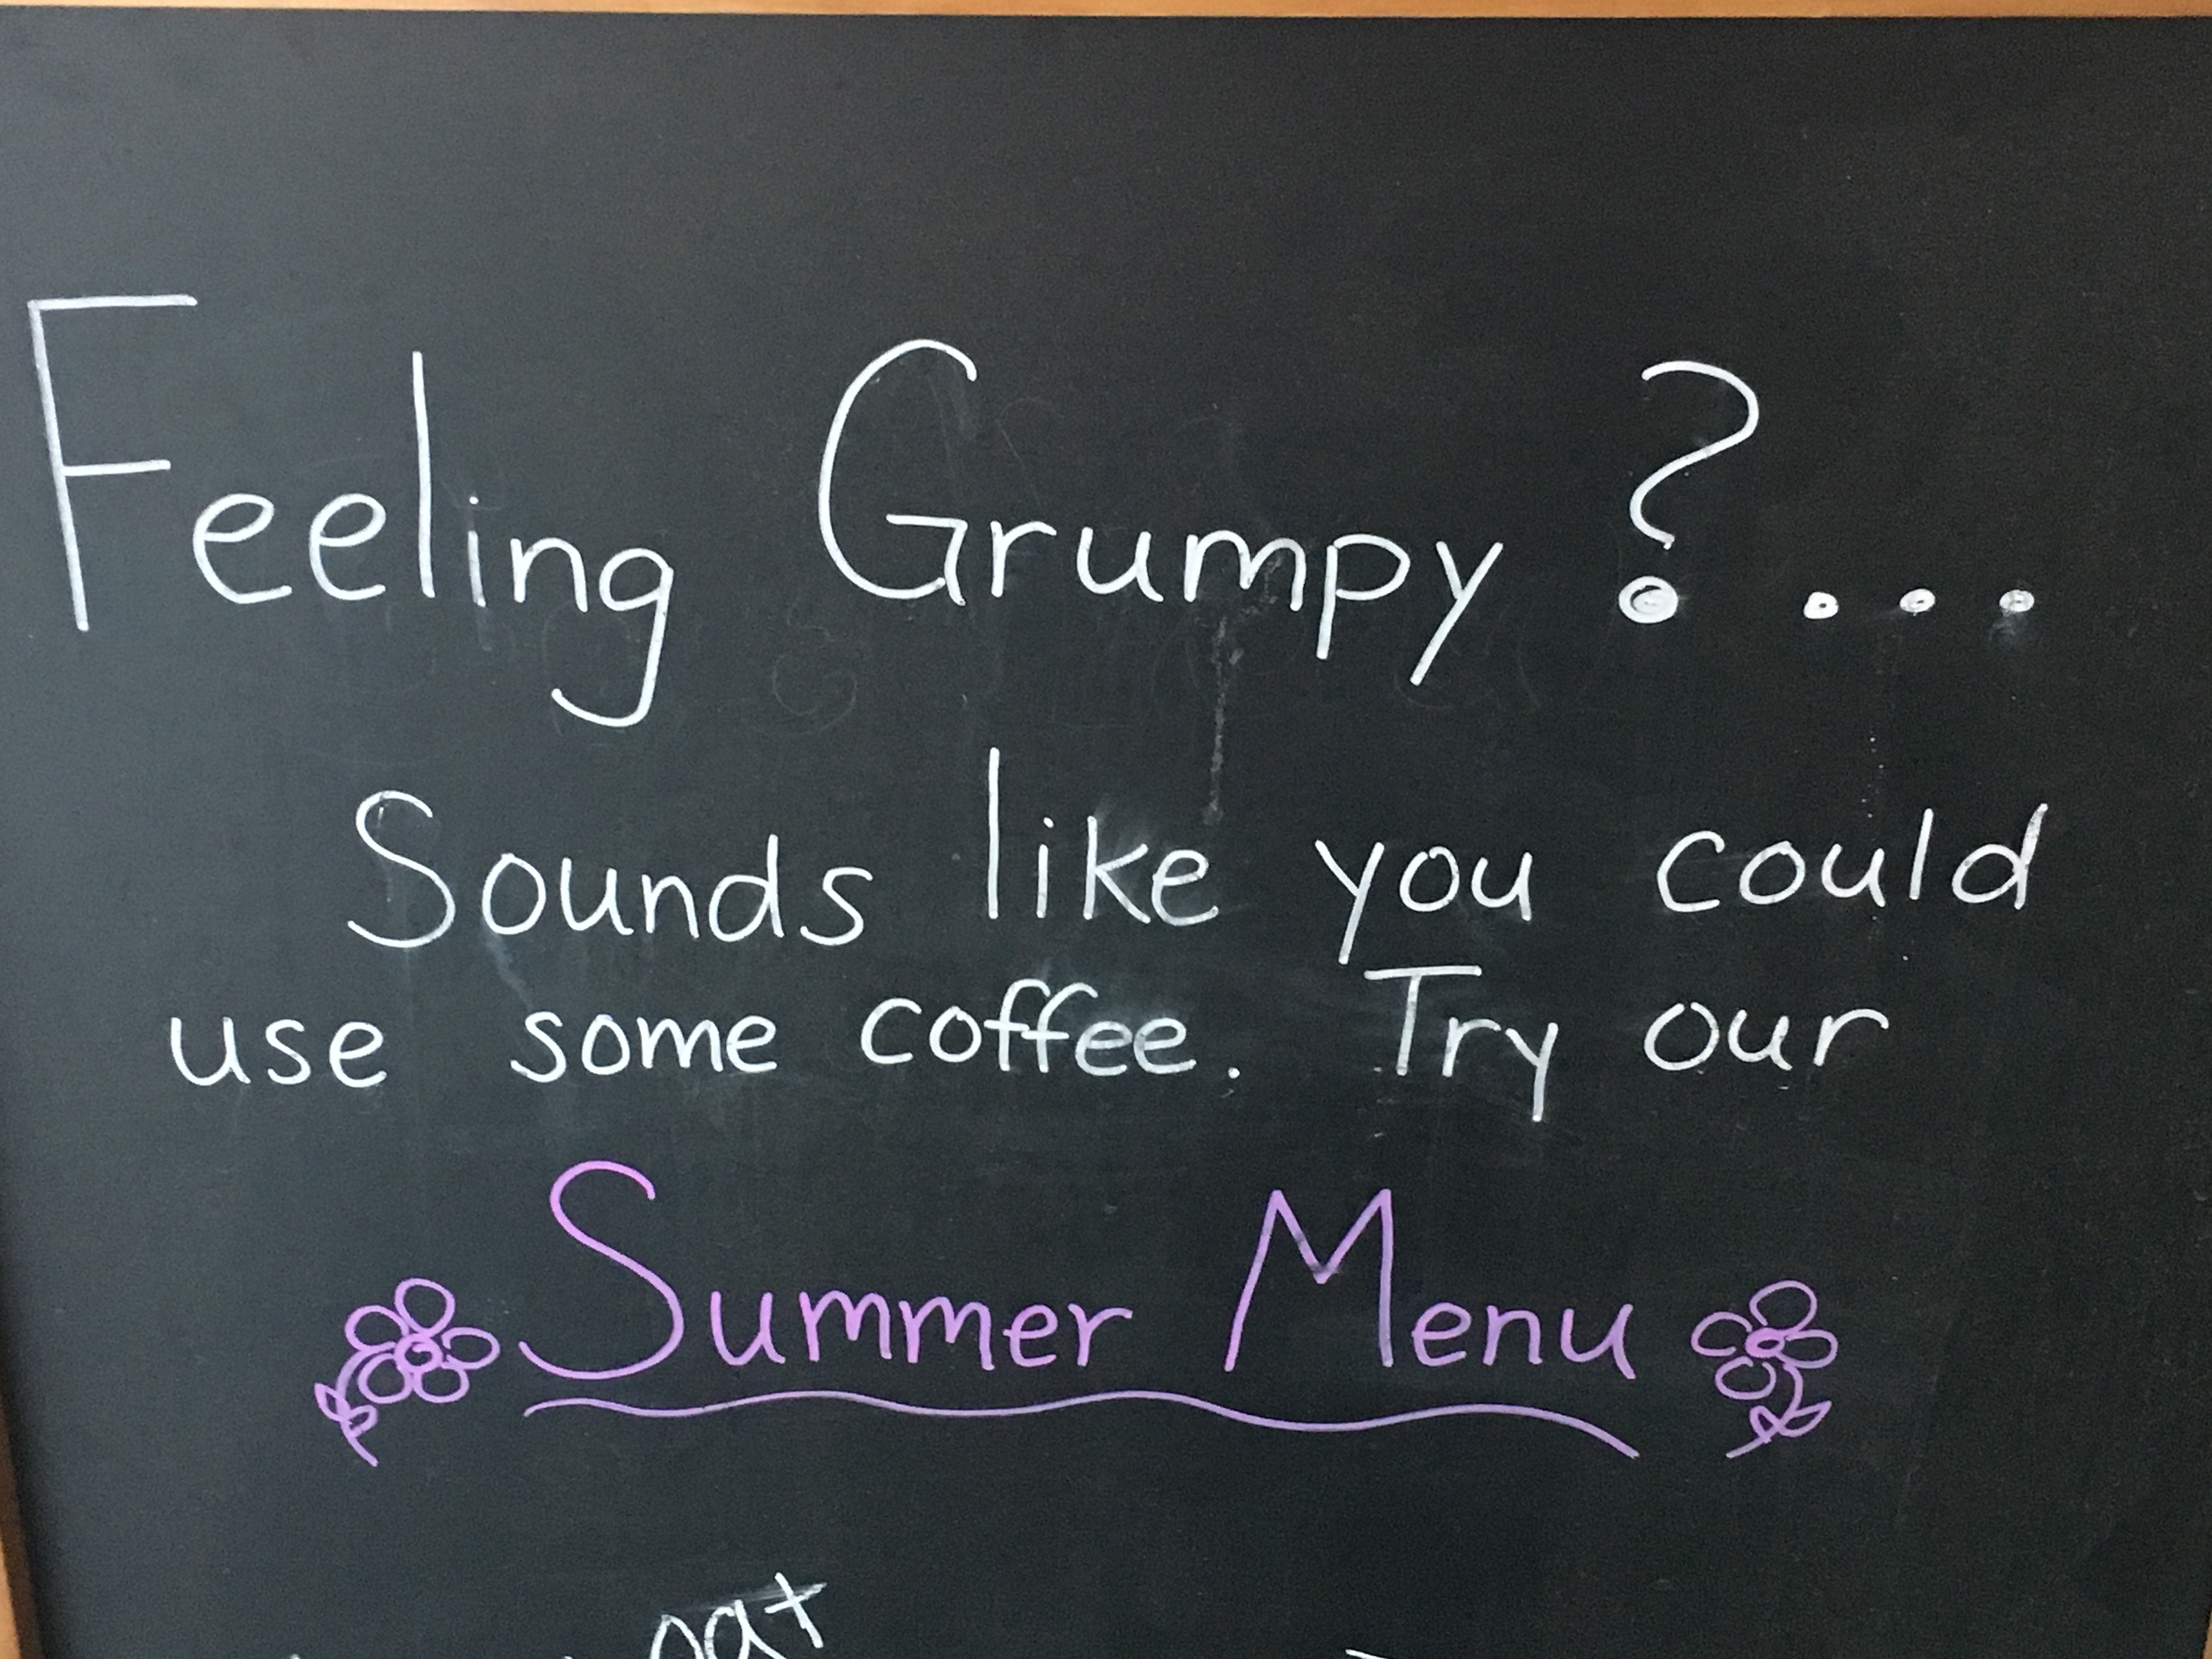 Feeling Grumpy?...
Sounds like you could
use some coffee. Try our
Summer Menu